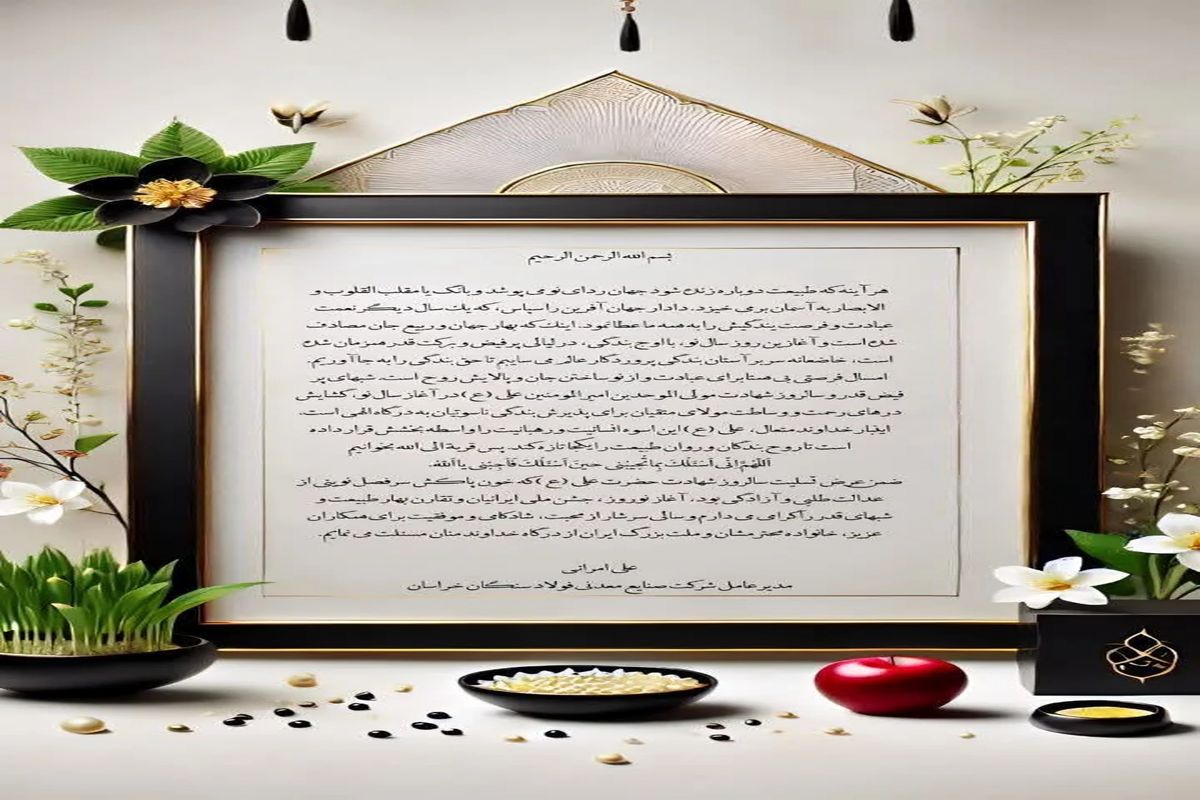 بسم الله الرحمن الرحیم
هر آینه که طبیعت دوباره زنده شود جهان ردای نو می پوشد و بانگ یا مقلب القلوب و
الابصار به آسمان بر می خیزد. دادار جهان آفرین را سپاس، که یک سال دیگر نعمت
عبادت و فرصت بندگیش را به همه ما عطا نمود. اینک که بهار جهان و ربیع جان مصادف
شده است و آغازین روز سال نو، با اوج بندگی، در لیالی پرفیض و برکت قدر همزمان شده
است، خاضعانه سر بر آستان بندگی پروردگار عالم می ساییم تا حق بندگی را به جا آوریم.
امسال فرصتی بی همتا برای عبادت و از نو ساختن جان و پالایش روح است. شبهای پر
فیض قدر و سالروز شهادت مولی الموحدین امیرالمومنین علی (ع) در آغاز سال نو، گشایش
درهای رحمت و وساطت مولای متقیان برای پذیرش بندگی ناسوتیان به درگاه الهی است.
اینبار خداوند متعال، علی (ع) این اسوه انسانیت و رهبانیت را واسطه بخشش قرار داده
است تا روح بندگان و روان طبیعت را یکجا تازه کند. پس قربة الی الله بخوانیم
اَللّهُمَّ اِنّی اَسئَلُکَ
ضمن عرض تسلیت سالروز شهادت حضرت علی (ع) که خون پاکش سرفصل نوینی از
عدالت طلبی و آزادگی بود، آغاز نوروز، جشن ملی ایرانیان و تقارن بهار طبیعت و
شبهای قدر را گرامی می دارم و سالی سرشار از محبت، شادکامی و موفقیت برای همکاران
عزیز، خانواده محترمشان و ملت بزرگ ایران از درگاه خداوند منان مسئلت می نمایم.
علی امرائی
مدیرعامل شرکت صنایع معدنی فولاد سنگان خراسان